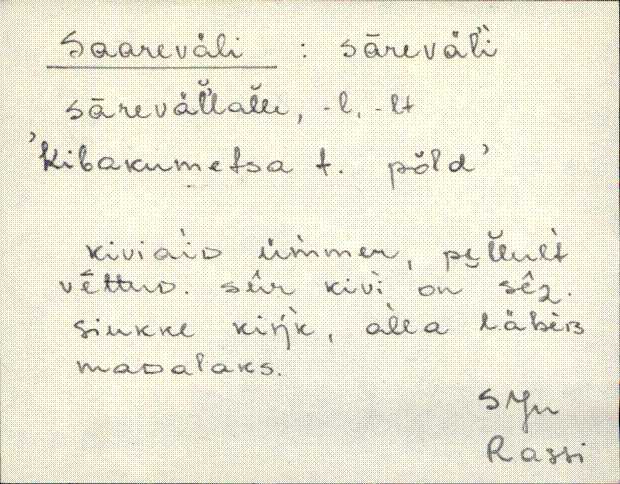 Saareväli : sārevält̀i
sārevällalle, -l, -lt
'Kibakumetsa t. põld'
kiviaiD ümmer, pellult
vēttuD. sêr kivi on sêz.
siukke kiŋk, alla läbeB
maDalaks.
SJn
Rassi